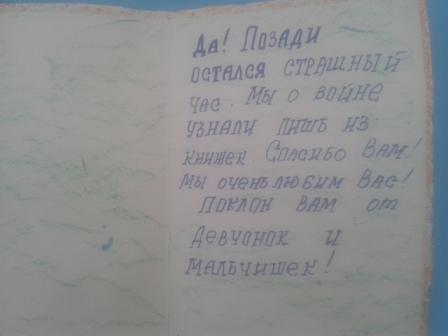 Да! Позади
остался страшный
час. Мы о войне
узнали лишь из
книжек. Спасибо Вам!
Мы очень любим Вас!
Поклон вам от
девчонок и
мальчишек!